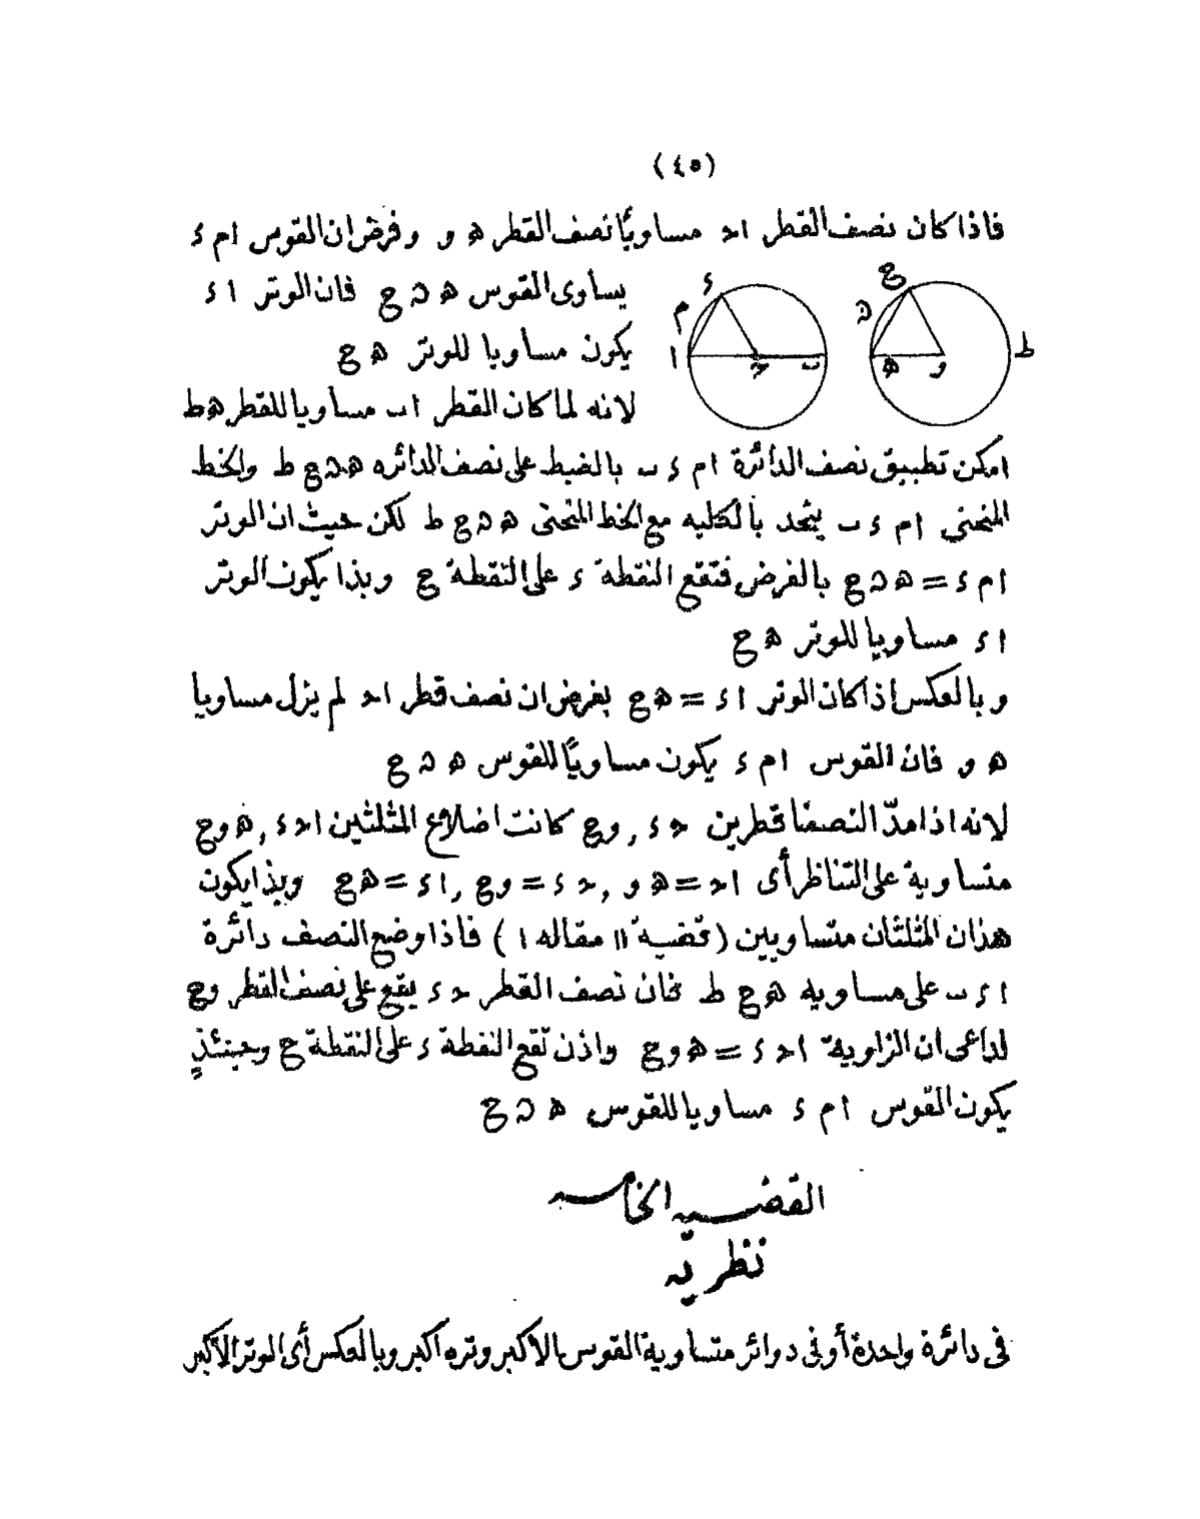 (٤٥)
فاذا كان نصف القطر ا حـ مساويًا نصف القطر ه و وفرض ان القوس ا م ء
يساوى القوس ه �, ع فان الوتر ا ء
يكون مساويا للوتر ه ع
لانه لما كان القطر ا ب مساويا للقطر ه ط
امكن تطبيق نصف الدائرة ا م ء ب بالضبط على نصف الدائره ه �, ع ط والخط
المنحنى ا م ء ب يتحد بالكليه مع الخط المنحنى ه �, ع ط لكن حيث ان الوتر
ا م ء = ه �, ع بالفرض فتقع النقطة ء على النقطة ع وبذا يكون الوتر
ا ء مساويا للوتر ه ع
وبالعكس اذا كان الوتر ا ء = ه ع بفرض ان نصف قطر ا حـ لم يزل مساويا
ه و فان القوس ا م ء يكون مساويًا للقوس ه �, ع
لانه اذا مدّ النصفا قطرين حـ ء , و ع كانت اضلاع المثلثين ا حـ ء , ه و ع
متساوية على التناظر أى ا حـ = ه و , حـ ء = و ع , ا ء = ه ع وبذا يكون
هذان المثلثان متساويين (قضية ١١ مقاله ١) فاذا وضع النصف دائرة
ا ء ب على مساويه ه ع ط فان نصف القطر حـ ء يقع على نصف القطر و ع
لداعى ان الزاوية ا حـ ء = ه و ع واذن تقع النقطة ء على النقطة ع وحينئذٍ
يكون القوس ا م ء مساويا للقوس ه �, ع
ء
م
ا
حـ
ب
ع
ه
و
ط
القضيه الخامسه
نظريه
فى دائرة واحدة أو فى دوائر متساوية القوس الاكبر وتره اكبر وبالعكس أى الوتر الاكبر